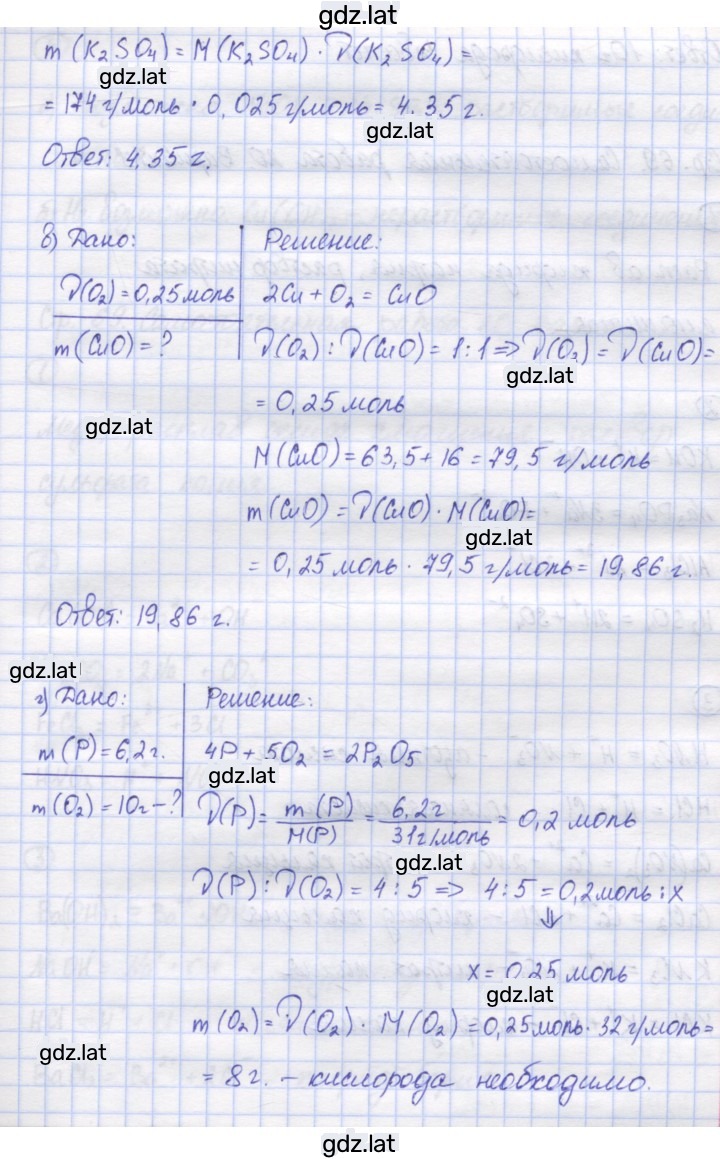 gdz.lat
m (K₂SO₄) = M (K₂SO₄) · ν (K₂SO₄) =
gdz.lat
= 174 г/моль · 0,025 г/моль = 4.35 г.
gdz.lat
Ответ: 4,35 г,
в) Дано: Решение:
ν(O₂) = 0,25 моль 2Cu + O₂ = CuO
m (CuO) = ? ν(O₂) : ν(CuO) = 1 : 1 ⇒ ν(O₂) = ν(CuO) =
gdz.lat
= 0,25 моль
gdz.lat
M (CuO) = 63,5 + 16 = 79,5 г/моль
m (CuO) = ν(CuO) · M(CuO) =
gdz.lat
= 0,25 моль · 79,5 г/моль = 19,86 г.
Ответ: 19,86 г.
gdz.lat
г) Дано: Решение:
m (P) = 6,2 г. 4P + 5O₂ = 2P₂O₅
gdz.lat
m (O₂) = 10г – ? ν(P) = m (P) / M(P) = 6,2г / 31г/моль = 0,2 моль
gdz.lat
ν(P) : ν(O₂) = 4 : 5 ⇒ 4 : 5 = 0,2 моль : x
⇓
x = 0,25 моль
gdz.lat
m (O₂) = ν(O₂) · M (O₂) = 0,25 моль · 32 г/моль =
gdz.lat
= 8 г. – кислорода необходимо.
gdz.lat